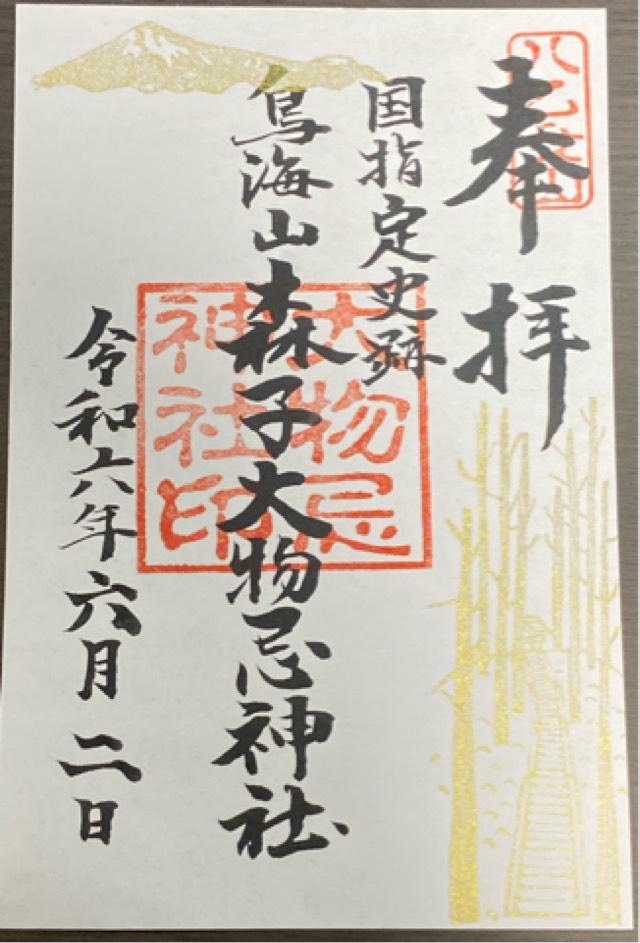 奉拝
国指定史跡
鳥海山森子大物忌神社
令和六年六月二日
大物忌
神社印